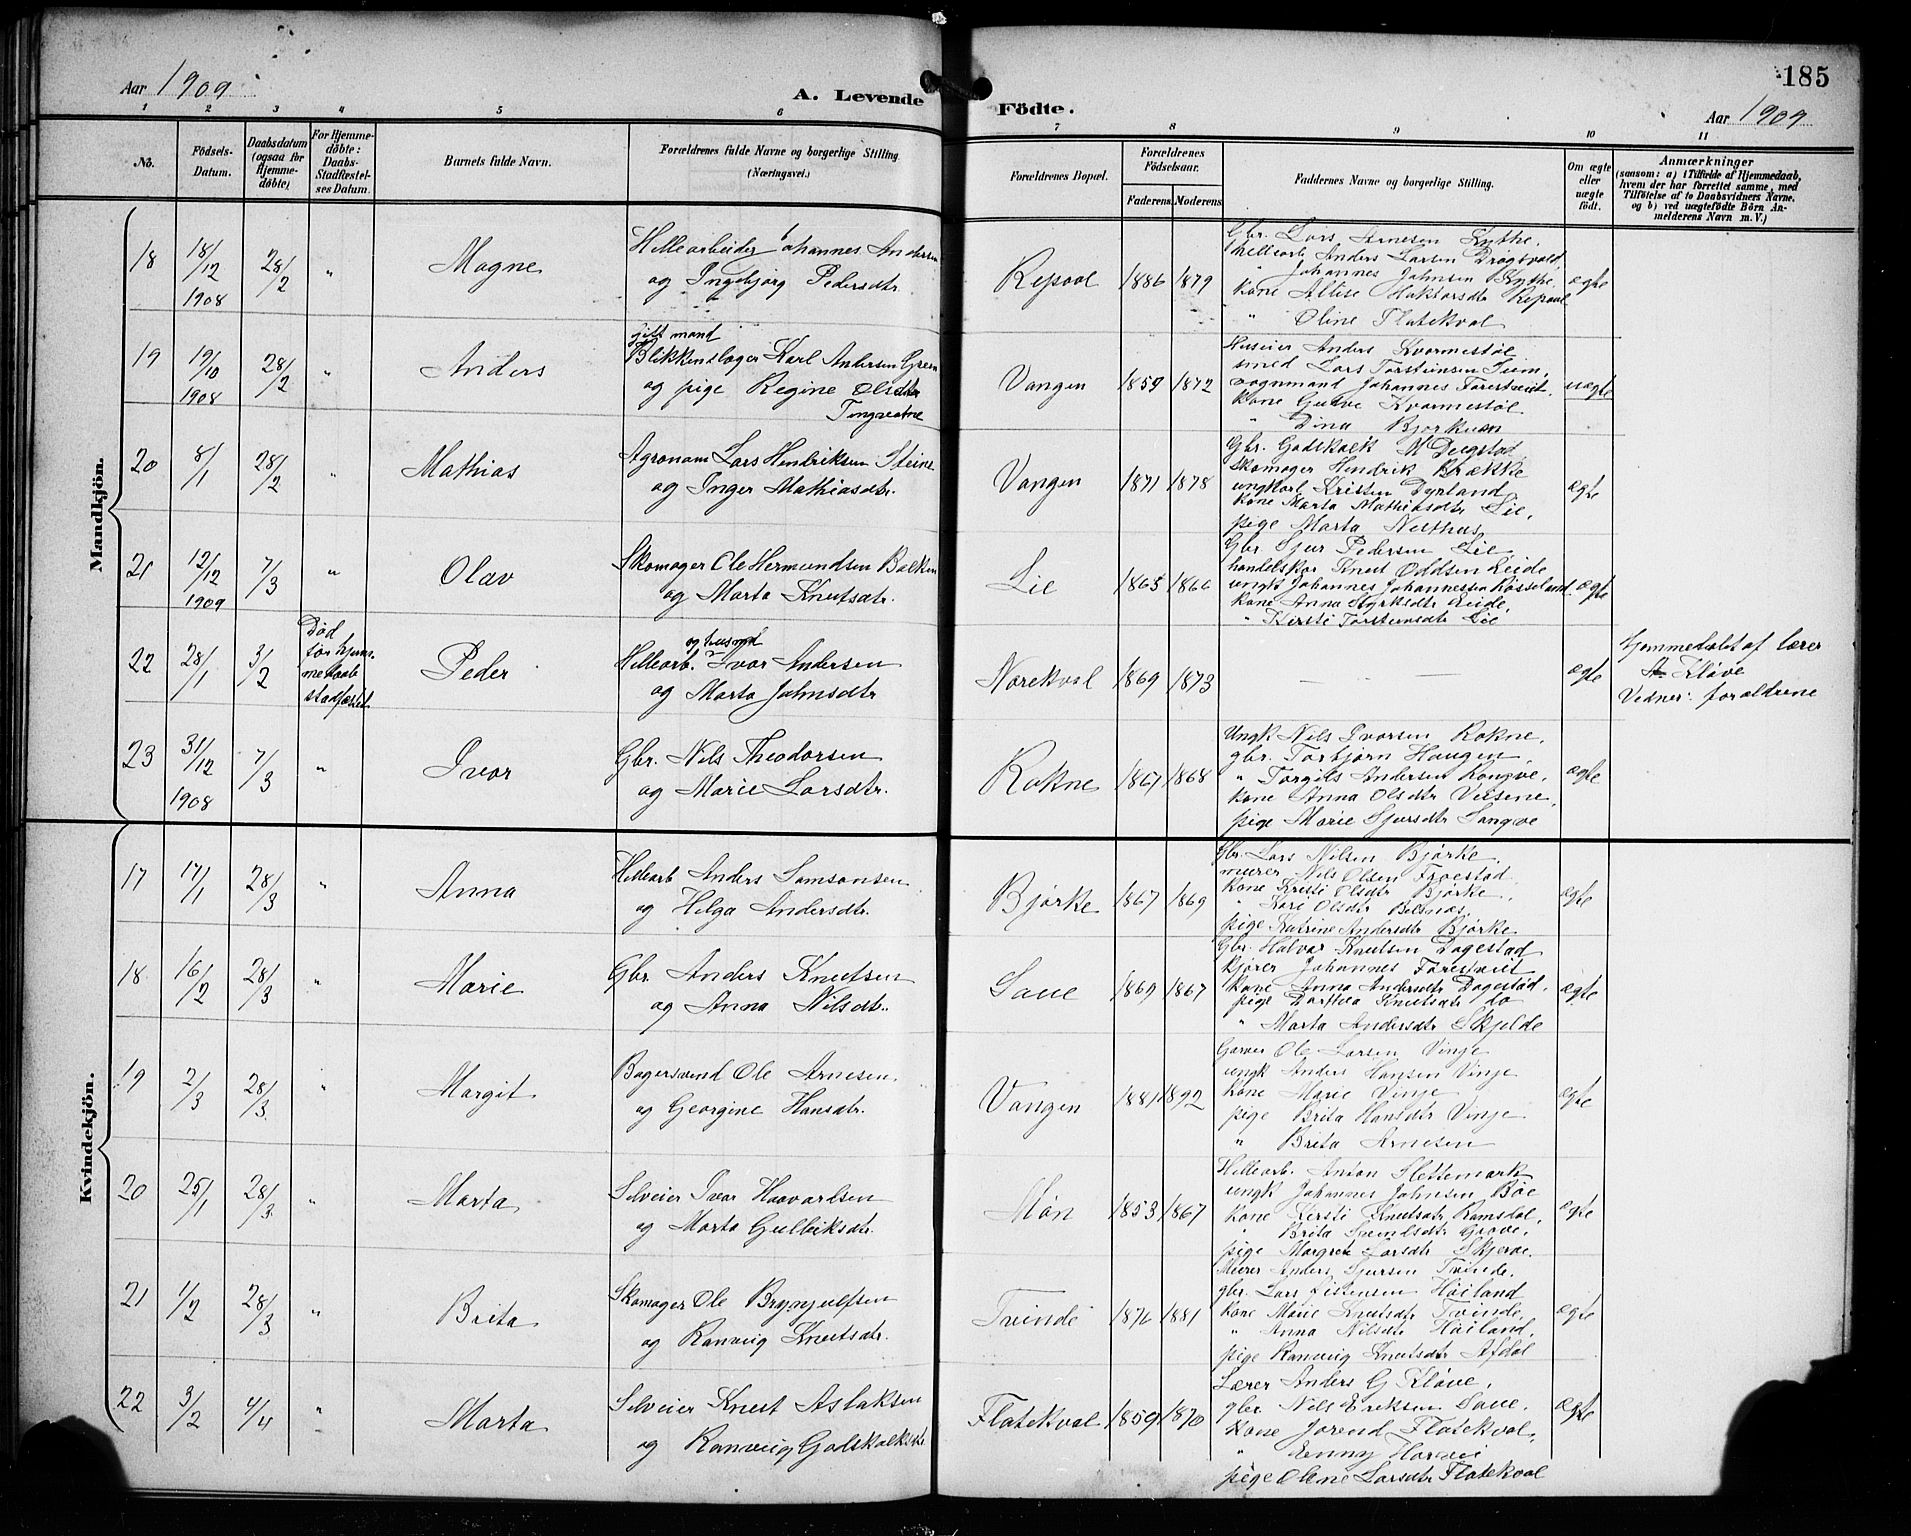 Aar 1909
A. Levende
1 2 3 4 5 6
No.
Födsels-Datum.
Daabsdatum (ogsaa for Hjemme-döbte)
For Hjemme-döbte: Daabs-Stadfæstel-ses Datum.
Barnets fulde Navn.
Forældrenes fulde Navne og borgerlige Stilling
(Næringsvei.)
Mandkjön.
18 18/12 1908 28/2 " Magne
Hellearbeider Johannes Andersen
og Ingebjørg Pedersdtr
19 19/10 1908 28/2 " Anders
gift mand
Blikkenslager Karl Andersen Green
og pige Regine Olsdtr
20 8/1 28/2 " Mathias
Agronom Lars Hendriksen Steine
og Inger Mathiasdtr.
21 12/12 1909 7/3 " Olav
Skomager Ole Hermundsen Bakken
og Marta Knutsdtr.
22 28/1 3/2 Død før hjem-medaab stadfæstet Peder
og husmd
Hellearb. Ivar Andersen
og Marta Johnsdtr
23 31/12 1908 7/3 " Ivar
Gbr. Nils Theodorsen
og Marie Larsdtr.
Kvindekjön.
17 17/1 28/3 " Anna
Hellearb Anders Samsonsen
og Helga Andersdtr.
18 16/2 28/3 " Marie
Gbr Anders Knutsen
og Anna Nilsdtr.
19 2/3 28/3 " Margit
Bagersvend Ole Arnesen
og Georgine Hansdtr.
20 25/1 28/3 " Marta
Selveier Ivar Haavarlsen
og Marta Gulleiksdtr.
21 1/2 28/3 " Brita
Skomager Ole Brynjulfsen
og Ranveig Knutsdtr.
22 3/2 4/4 " Marta
Selveier Knut Aslaksen
og Ranveig Godskalksdtr
185
Födte.
Aar 1909
7 8 9 10 11
Forældrenes Bopæl.
Forældrenes Födselsaar.
Faderens Moderens
Faddernes Navne og borgerlige Stilling.
Om ægte eller uægte födt.
Anmærkninger
(saasom: a) i Tilfælde af Hjemmedaab,
hvem der har forrettet samme, med
Tilföielse af to Daabsvidners Navne,
og b) ved uægtefödte Börn An-
melderens Navn m. V.)
Repaal 1886 1879 ægte
Gbr. Lars Arnesen Kythe,
Hellearb Anders Larsen Dragsvold,
" Johannes Johnsen Kythe,
kone Repaal
" Oline Flatekval
Vangen 1859 1872 uægte
Huseier Anders Kvarmestøl
smed Lars Torsteinsen Siim,
vognmand Johannes Førestveit,
kone Gurve Kvarmestøl
" Dina
Vangen 1871 1878 ægte
Gbr. Godskalk M Dugstad,
Skomager Hendrik Brække
ungkarl Kristen Dyrland
kone Marta Mathiasdtr Lie,
pige Marta Nesthus
Lie 1865 1866 ægte
Gbr Sjur Pedersen Lie
handelskar Knut Oddsen Leide
ungk Johannes Johannessen Røsseland
kone Anna Styrksdtr Eide,
" Kersti Torsteinsdtr Lie
Norekval 1869 1873 — — ægte
Hjemmedøbt af lærer
Kløve
Vidner: forældrene
Rokne 1867 1868 ægte
Ungk Nils Ivarsen Rokne,
gbr. Torbjørn Haugen,
" Torgils Andersen Rongve,
kone Anna Olsdtr Veisene,
pige Marie Sjursdtr Sangve
Bjørke 1867 1869 ægte
Gbr. Lars Nilsen Bjørke,
murer Nils Olsen Trøestad
kone Kristi Olsdtr Bjørke,
" Kari Olsdtr
pige Katrine Andersdtr Bjørke
Saue 1869 1867 ægte
Gbr. Halvar Knutsen Dagestad
kjører Johannes Førestveit
kone Anna Andersdtr Dagestad,
pige Dorthea Knutsdtr do
" Marta Andersdtr Skjelde
Vangen 1881 1892 ægte
Garver Ole Larsen Vinje
ungk Anders Hansen Vinje
kone Marie Vinje
pige Brita Hansdtr Vinje
" Brita Arnesen
Møn 1853 1867 ægte
Hellearb. Anton Slettemark
ungk Johannes Johnsen Bøe
kone Kersti Knutsdtr Ramsdal,
" Brita Svendsdtr Grove,
pige Margreta Larsdtr Skjerve.
Tvinde 1876 1881 ægte
Murer Anders Sjursen Tvinde,
gbr. Lars Høiland
kone Marie Knutsdtr Tvinde,
" Anna Nilsdtr Høiland,
pige Ranveig Knutsdtr Afdal
Flatekval 1859 1870 ægte
Lærer Anders G Kløve,
gbr Nils Eriksen Saue,
kone Jorend Flatekval,
" Emmy
pige Oline Larsdtr Flatekval